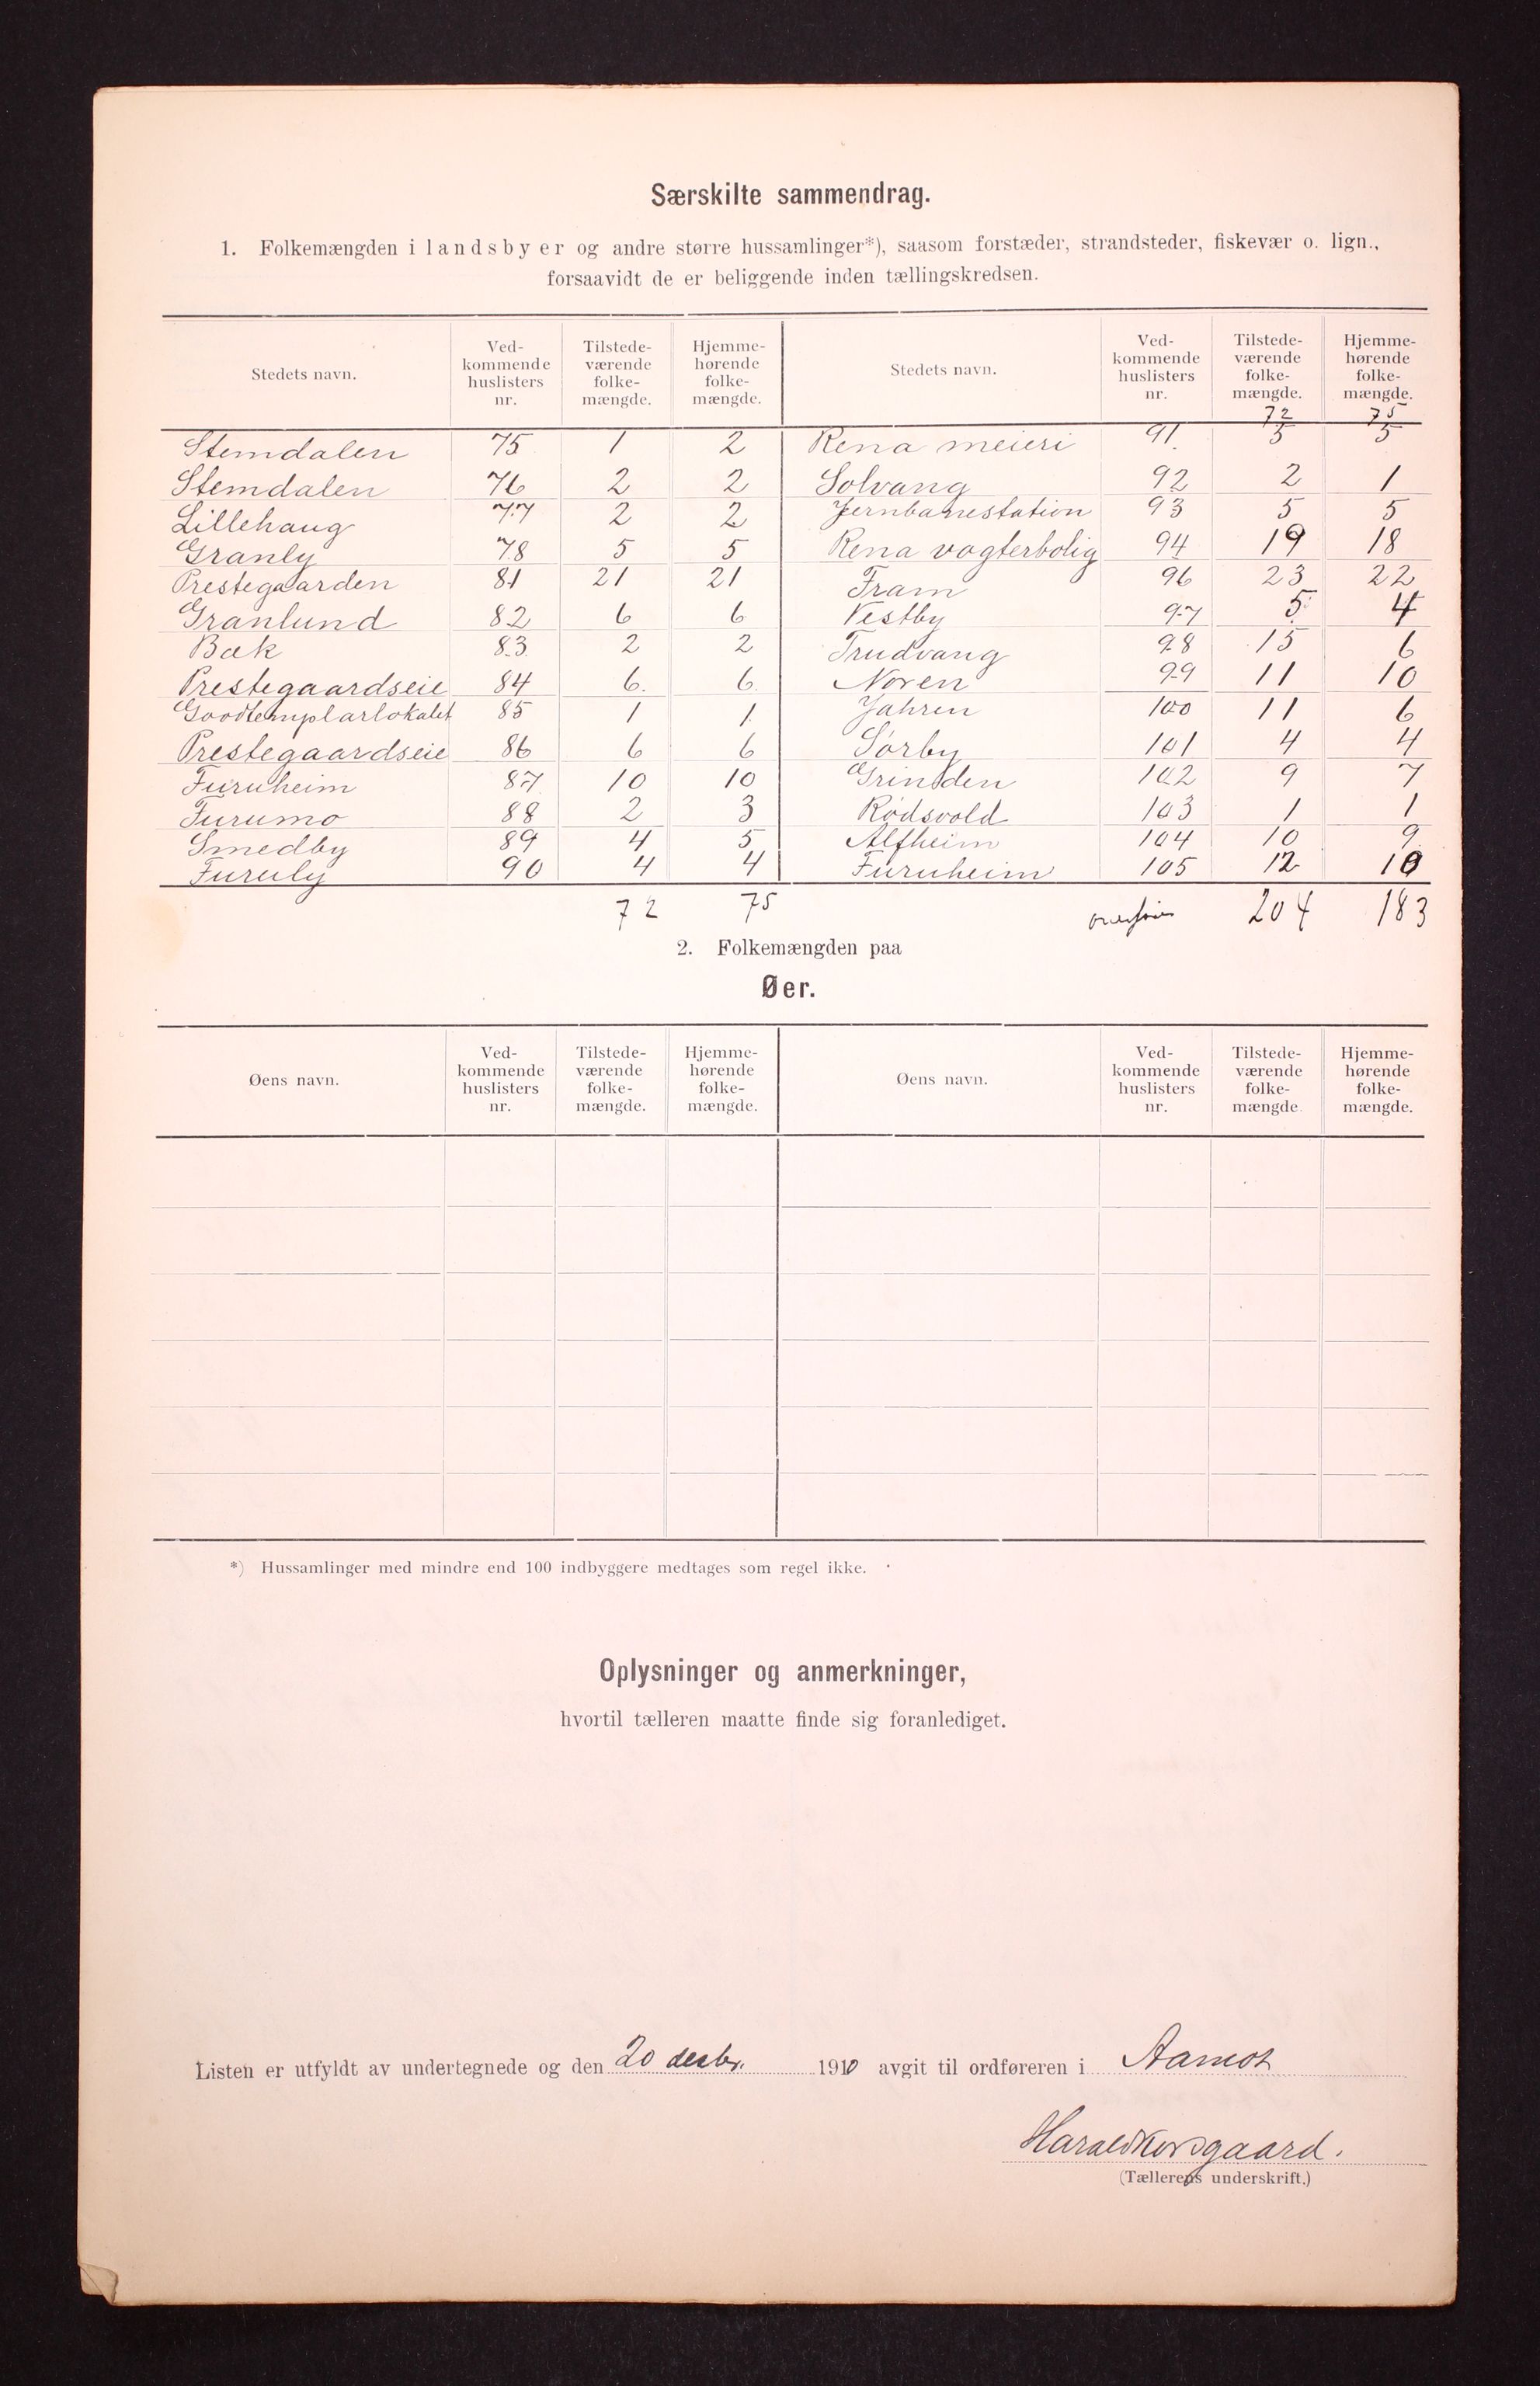 Særskilte sammendrag.
1. Folkemængden i landsbyer og andre større hussamlinger*), saasom forstæder, strandsteder, fiskevær o. lign.,
forsaavidt de er beliggende inden tællingskredsen.
Stedets navn. Ved-kommende huslisters nr. Tilstede-værende folke-mængde. Hjemme-hørende folke-mængde. Stedets navn. Ved-kommende huslisters nr. Tilstede-værende folke-mængde. Hjemme-hørende folke-mængde.
72 75
Stemdalen 75 1 2 Rena meieri 91 5 5
Stemdalen 76 2 2 Solvang 92 2 1
Lillehaug 77 2 2 Jernbanestation 93 5 5
Granly 78 5 5 Rena vogterbolig 94 19 18
Prestegaarden 81 21 21 Fram 96 23 22
Granlund 82 6 6 Vestby 97 5 4
Bæk 83 2 2 Trudvang 98 15 6
Prestegaardseie 84 6 6 Noren 99 11 10
Goodtemplarlokalet 85 1 1 Jahren 100 11 6
Prestegaardseie 86 6 6 Sørby 101 4 4
Furuheim 87 10 10 Grinden 102 9 7
Furumo 88 2 3 Rødsvold 103 1 1
Smedby 89 4 5 Alfheim 104 10 9
Furuly 90 4 4 Furuheim 105 12 10
72 75 204 183
2. Folkemængden paa
Øer.
Øens navn. Ved-kommende huslisters nr. Tilstede-værende folke-mængde. Hjemme-hørende folke-mængde. Øens navn. Ved-kommende huslisters nr. Tilstede-værende folke-mængde Hjemme-hørende folke-mængde.
*) Hussamlinger med mindre end 100 indbyggere medtages som regel ikke.
Oplysninger og anmerkninger,
hvortil tælleren maatte finde sig foranlediget.
Listen er utfyldt av undertegnede og den 20 desbr. 1910 avgit til ordføreren i Aamot
Harald Korsgaard.
(Tællerens underskrift.)